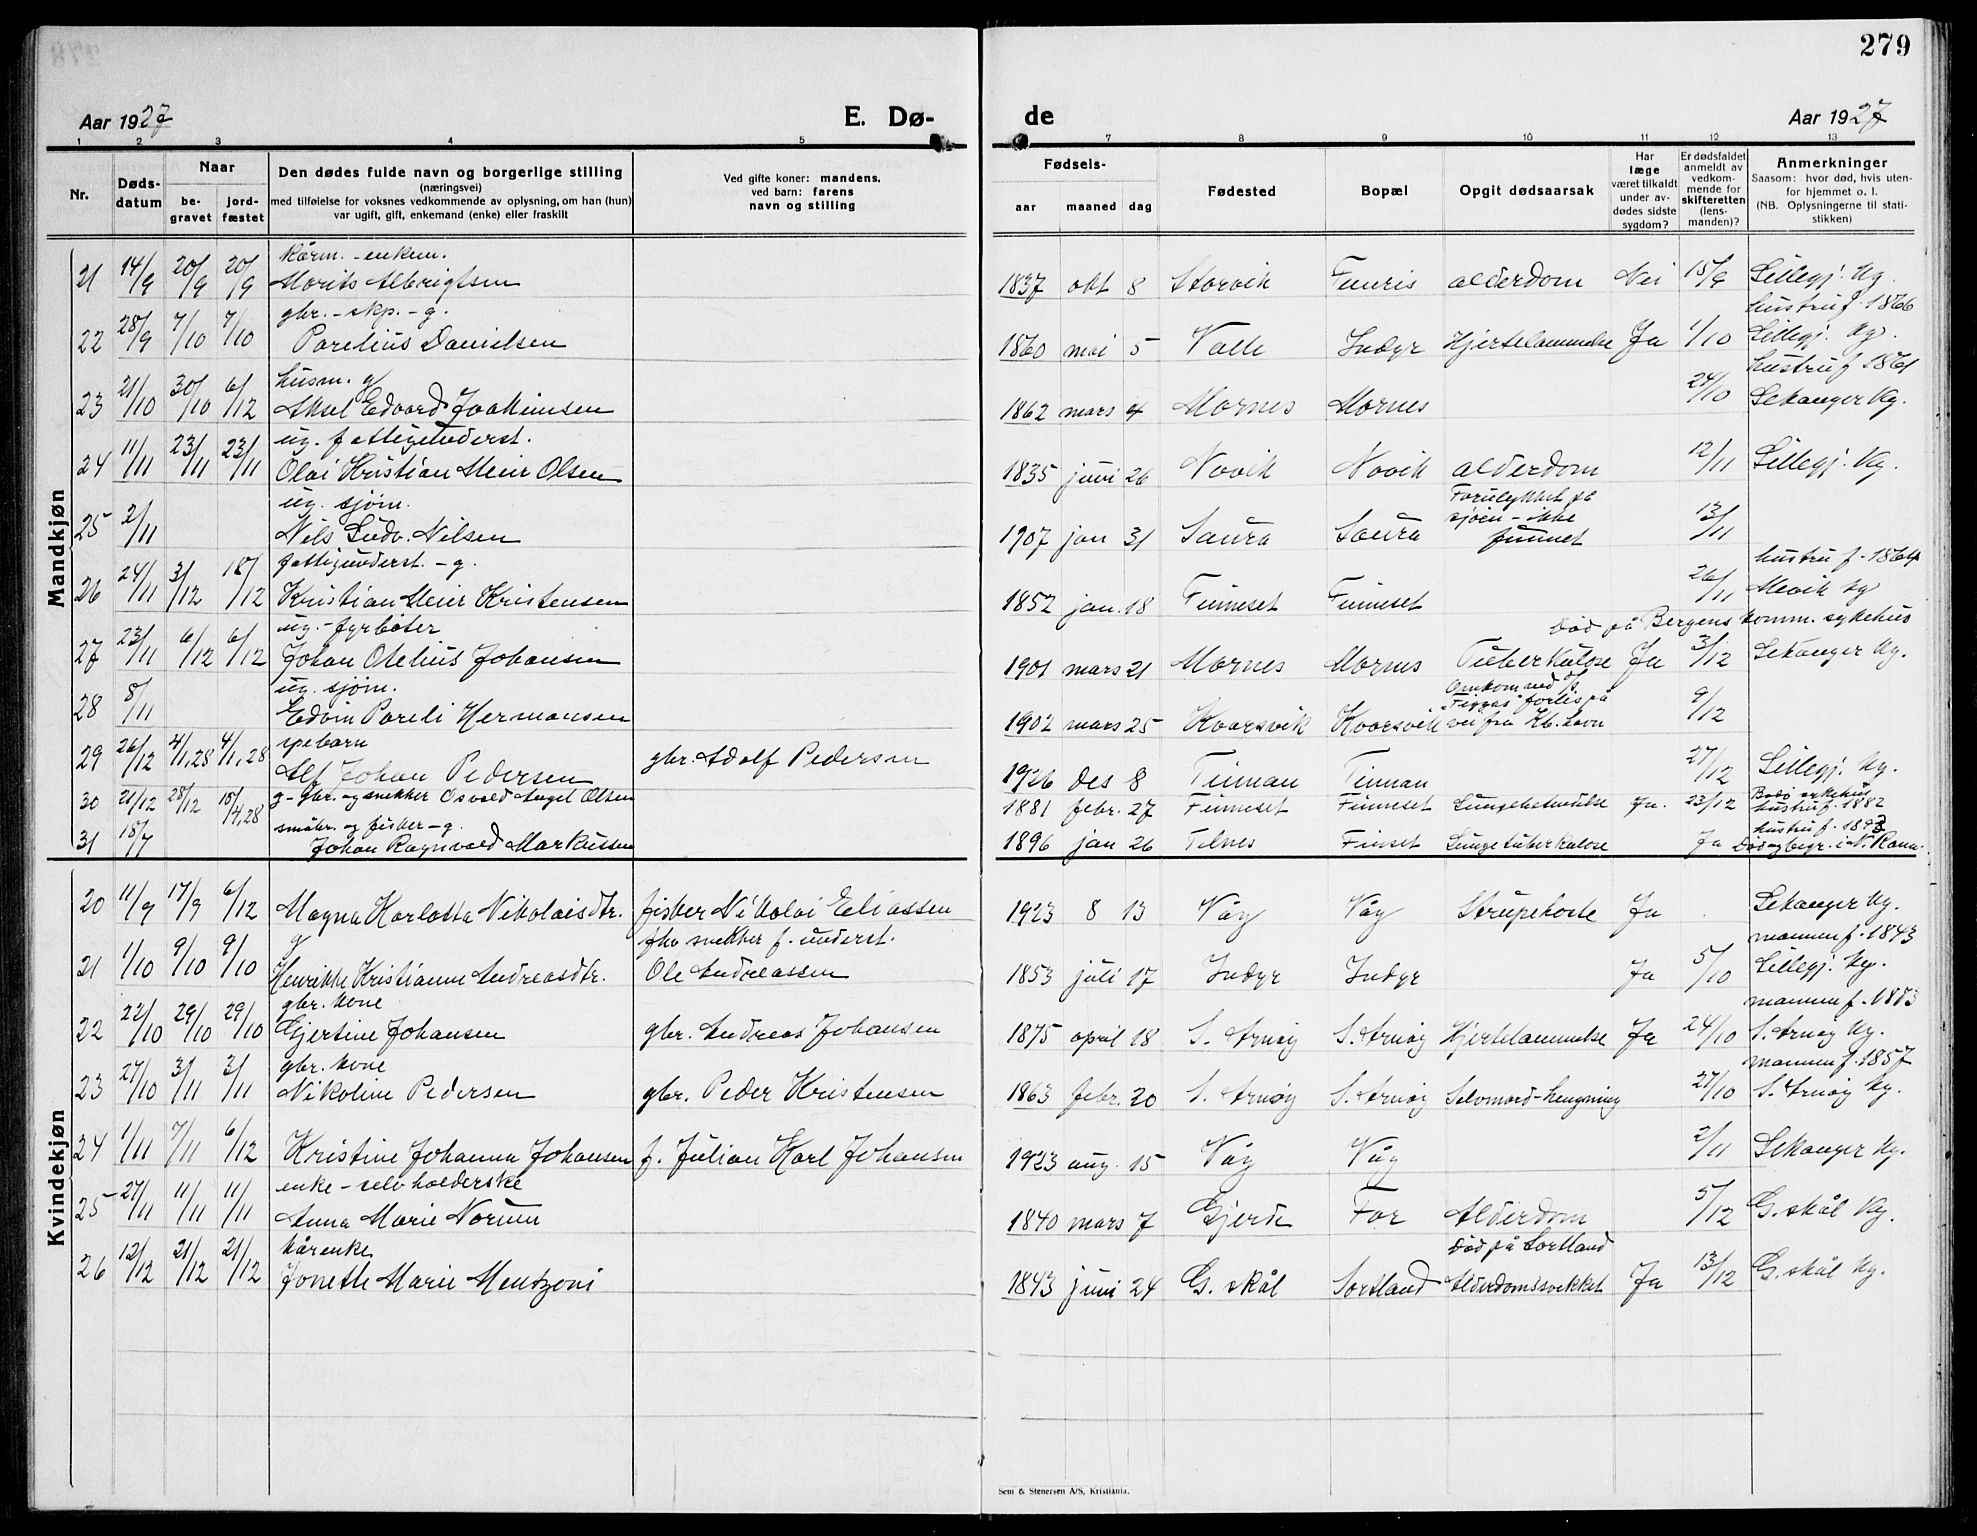 279
Aar 1927
E. Dø-
de
Aar 1927
1 2 3 4 5 7 8 9 10 11 12 13
Nr.
Døds-
datum
Naar
be-
gravet
jord-
fæstet
Den dødes fulde navn og borgerlige stilling
(næringsvei)
med tilføielse for voksnes vedkommende av oplysning, om han (hun)
var ugift, gift, enkemand (enke) eller fraskilt
Ved gifte koner: mandens,
ved barn: farens
navn og stilling
Fødsels-
aar maaned dag
Fødested
Bopæl
Opgit dødsaarsak
Har
læge
været tilkaldt
under av-
dødes sidste
sygdom?
Er dødsfaldet
anmeldt av
vedkom-
mende for
skifteretten
(lens-
manden)?
Anmerkninger
Saasom: hvor død, hvis uten-
for hjemmet o. l.
(NB. Oplysningerne til stati-
stikken)
Mandkjøn
kårm. - enkem.
21 14/9 20/9 20/9 Morits Albrigtsen 1837 okt 8 Storvik Funris alderdom Nei 15/9 Lillegj. kg.
gbr. - skp. - g. hustru f. 1866
22 28/9 7/10 7/10 Parelius Danielsen 1860 mai 5 Valle Indyr Hjertelammelse Ja 1/10 Lillegj. kg.
husm. g hustru f 1861
23 21/10 30/10 6/12 Aksel Edvard Joakimsen 1862 mars 4 Mornes Mornes 24/10 Sekanger kg.
ug. fattigunderst.
24 11/11 23/11 23/11 Olai Kristian Meier Olsen 1835 juni 26 Novik Novik alderdom 12/11 Lillegj. kg.
ug. sjøm. Forulykket på
25 2/11 Nils Ludv. Nilsen 1907 jan 31 Saura Saura sjøen - ikke 13/11
funnet
fattigunderst. - g. hustru f. 1864
26 24/11 3/12 18/12 Kristian Meier Kristensen 1852 jan. 18 Finneset Finneset 26/11 Mevik kg
ug. - fyrbøter Død på Bergens komm. sykehus
27 23/11 6/12 6/12 Johan Otelius Johansen 1901 mars 21 Mornes Mornes Tuberkulose Ja 3/12 Sekanger kg.
ug. sjøm. Omkom ved
28 8/11 Edvin Pareli Hermansen 1902 mars 25 Kvarsvik Kvarsvik forlis på
vei fra Kb. havn 9/12
spebarn
29 26/12 4/1,28 4/1,28 Alf Johan Pedersen gbr. Adolf Pedersen 1926 des 8 Finnan Finnan 27/12 Lillegj. kg.
30 21/12 28/12 15/4,28 g - gbr. og snekker Osvald Angel Olsen 1881 febr. 27 Finneset Finneset Lungebetendelse Ja. 23/12 Bodø sykehus
hustru f. 1882
småbr. og fisker - g. hustru f. 1893
31 18/7 Johan Ragnvald Markussen 1896 jan 26 Telnes Finset Lungetuberkulose Ja Død og begr. i N. Rana.
Kvindekjøn
20 11/9 17/9 6/12 Magna Karlotta Nikolaisdtr. fisker Nikolai Eliassen 1923 8 13 Våg Våg Strupehoste Ja Sekanger kg.
g fhv snekker f. underst. mannen f. 1843
21 1/10 9/10 9/10 Henrikke Kristianne Andreasdtr. Ole Andreassen 1853 juli 17 Indyr Indyr Ja 5/10 Lillegj. kg.
gbr. kone mannen f. 1883
22 22/10 29/10 29/10 Gjertine Johansen gbr. Andreas Johansen 1875 april 18 S. Arnøy S. Arnøy Hjertelammelse Ja 24/10 S. Arnøy kg.
gbr. kone mannen f. 1857
23 27/10 3/11 3/11 Nikoline Pedersen gbr. Peder Kristensen 1863 febr. 20 S. Arnøy S. Arnøy Selvmord - hengning 27/10 S. Arnøy kg.
24 1/11 7/11 6/12 Kristine Johanna Johansen f. Julian Karl Johansen 1923 aug. 15 Våg Våg 2/11 Sekanger kg.
enke - selvholderske
25 27/11 11/11 11/11 Anna Marie Norum 1840 mars 7 Gjerde For Alderdom 5/12 G. skål kg.
kårenke Død på Sortland
26 12/12 21/12 21/12 Jonette Marie Mentzoni 1843 juni 24 G. skål Sortland Alderdomssvekket Ja 13/12 G. skål kg.
Sem & Stenersen A/S, Kristiania.